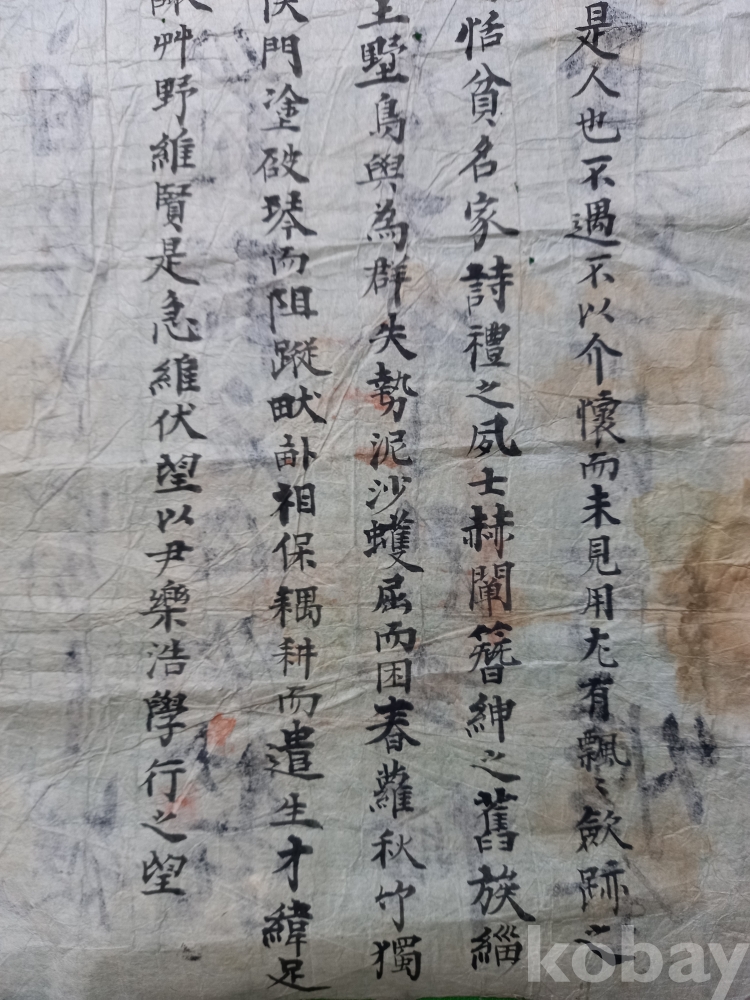 是人也不遇不以介懷而未見用尤有飄〻歛跡之
恬貧名家詩禮之夙士赫閈簪紳之舊族緇
墅鳥與為群失勢泥沙蠖屈而困春蘿秋竹獨
侯門塗破琴而阻蹤畎畝相保耦耕而遣生才緯足
艸野維賢是急維伏望以尹樂浩學行之望
kobay